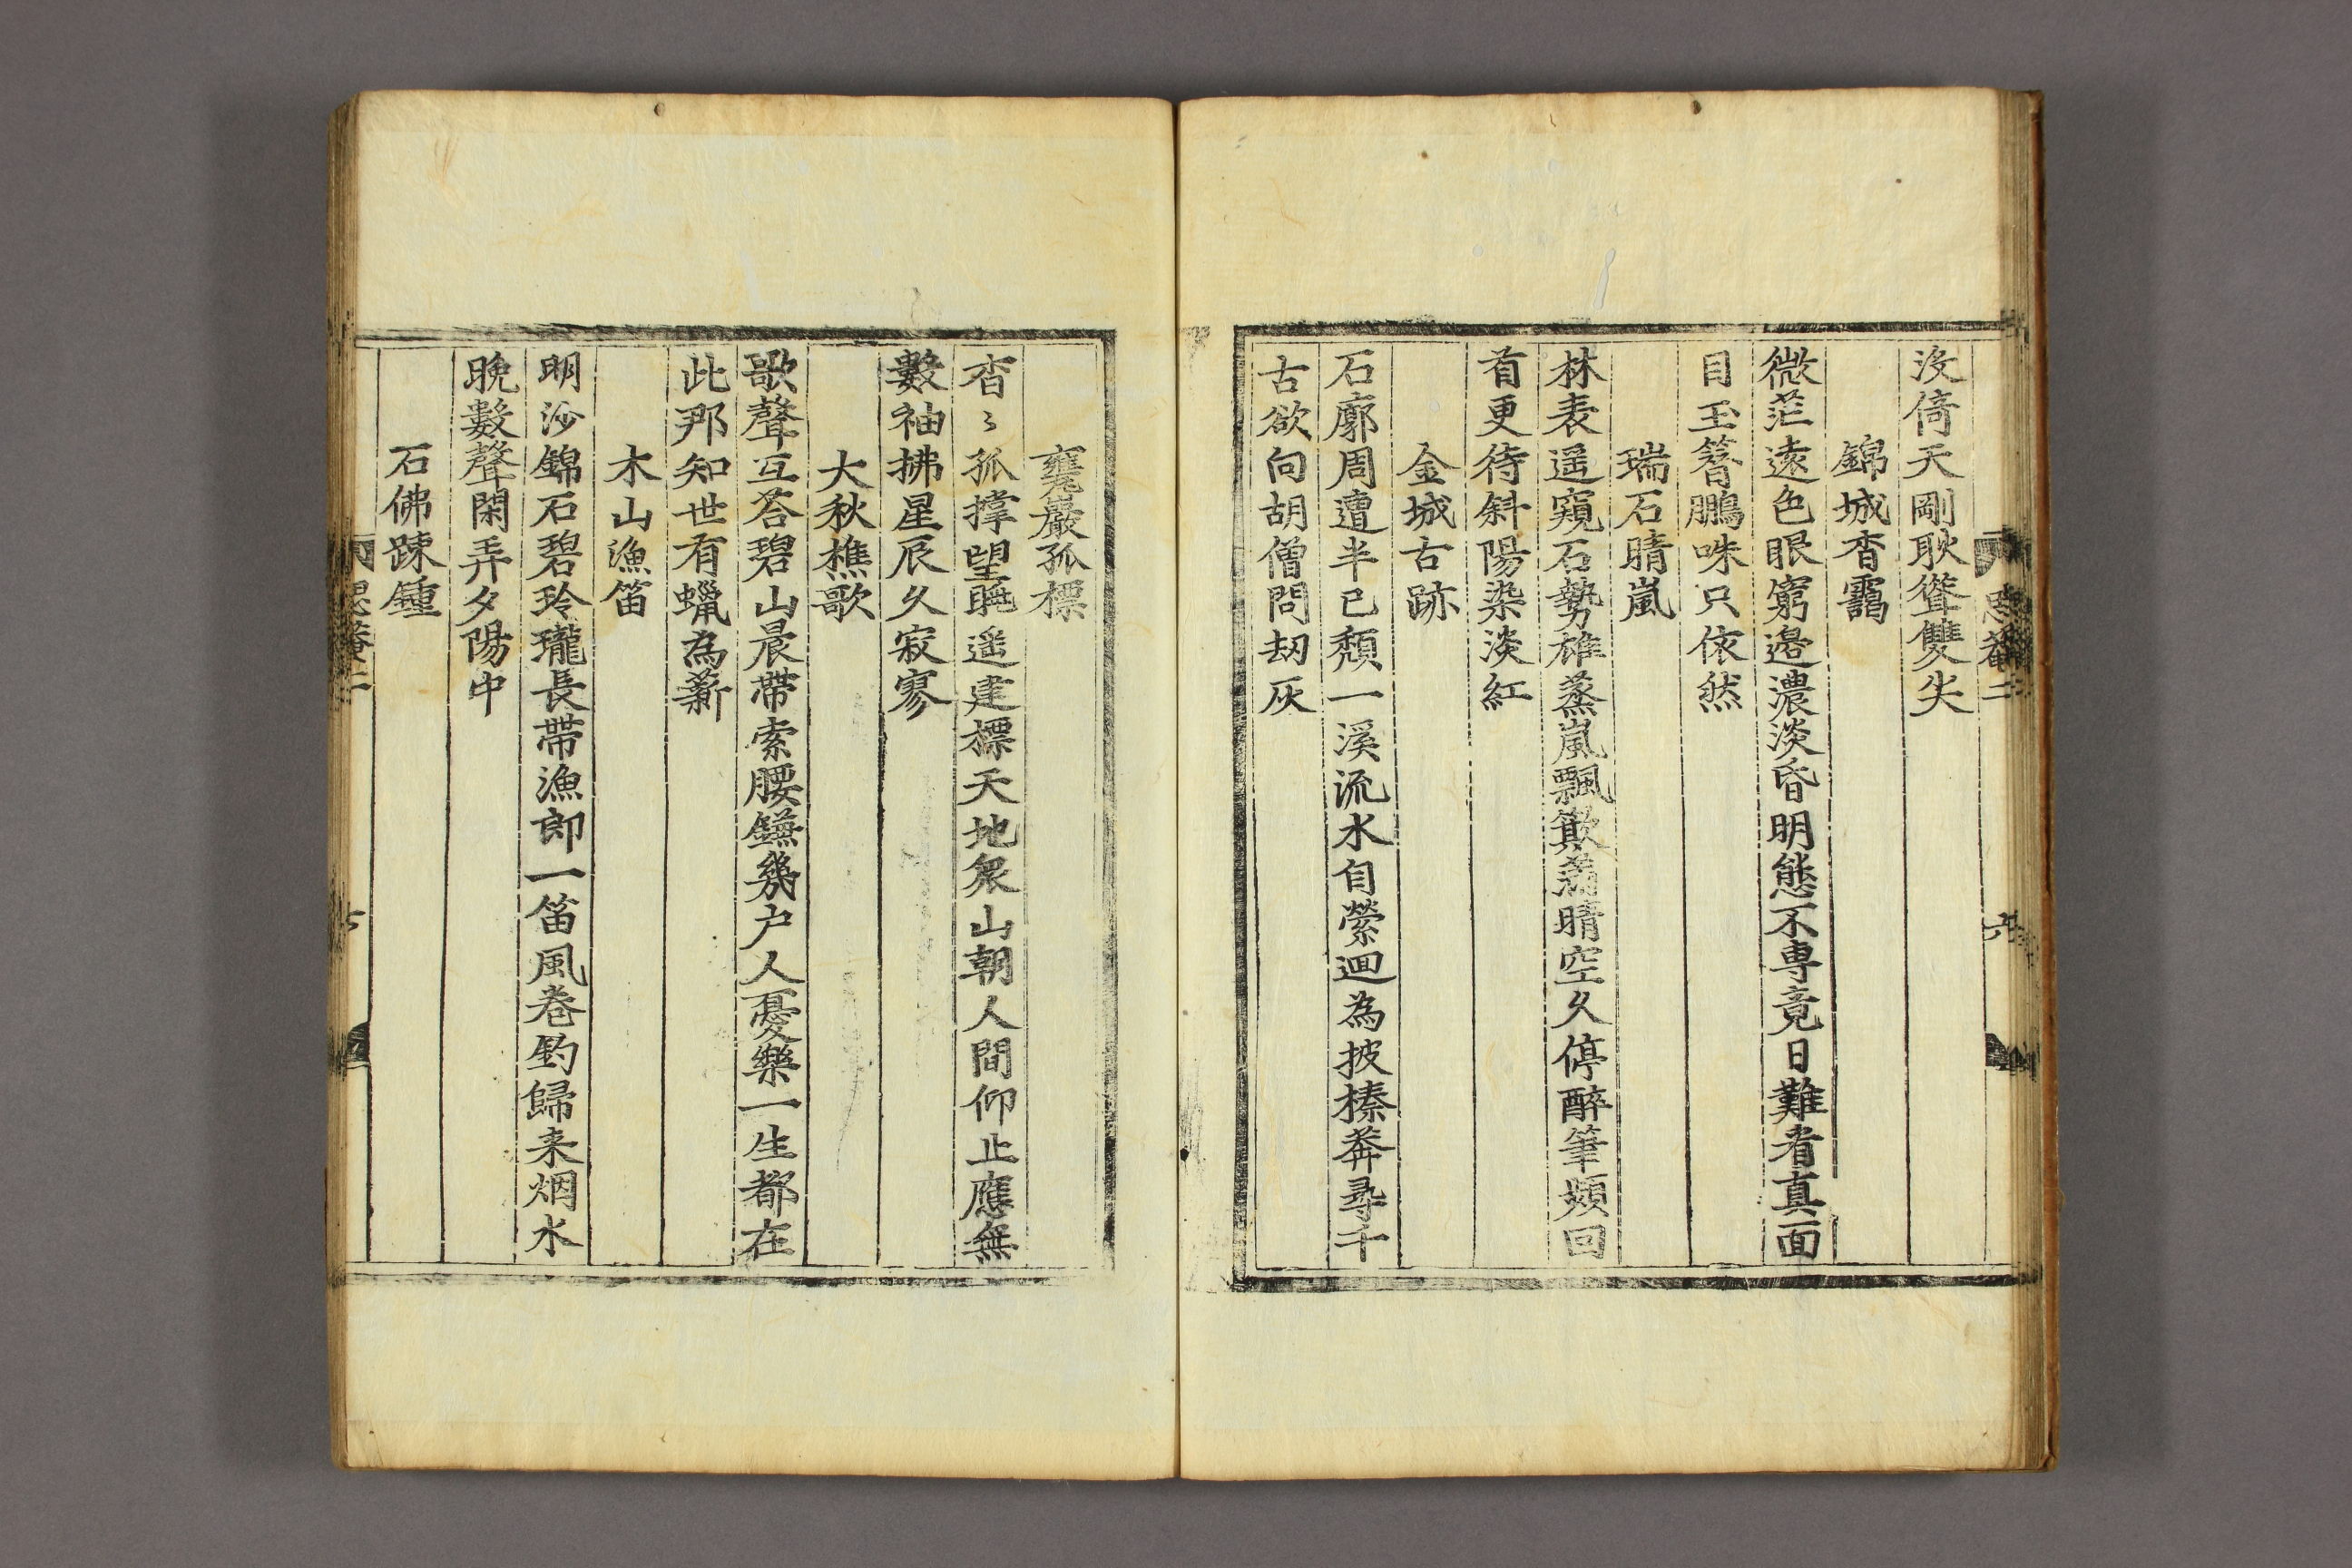 沒倚天剛耿聳雙尖
錦城杳靄
微茫遠色眼窮邊濃淡昏明態不專竟日難看真面
目玉簪鵬咮只依然
瑞石晴嵐
林表遥窺石勢雄蒸嵐飄歘蕩晴空久停醉筆頻回
首更待斜陽染淡紅
金城古跡
石廓周遭半已頹一溪流水自縈迴為披榛莽尋千
古欲向胡僧問刼灰
思菴二
六
甕巖孤標
杳〻孤撑望眺遥建標天地衆山朝人間仰止應無
數袖拂星辰久寂寥
大秋樵歌
歌聲互答碧山晨帶索腰鎌幾户人憂樂一生都在
此那知世有蠟為薪
木山漁笛
明沙錦石碧玲瓏長帶漁郎一笛風卷釣歸来烟水
晩數聲閑弄夕陽中
石佛踈鍾